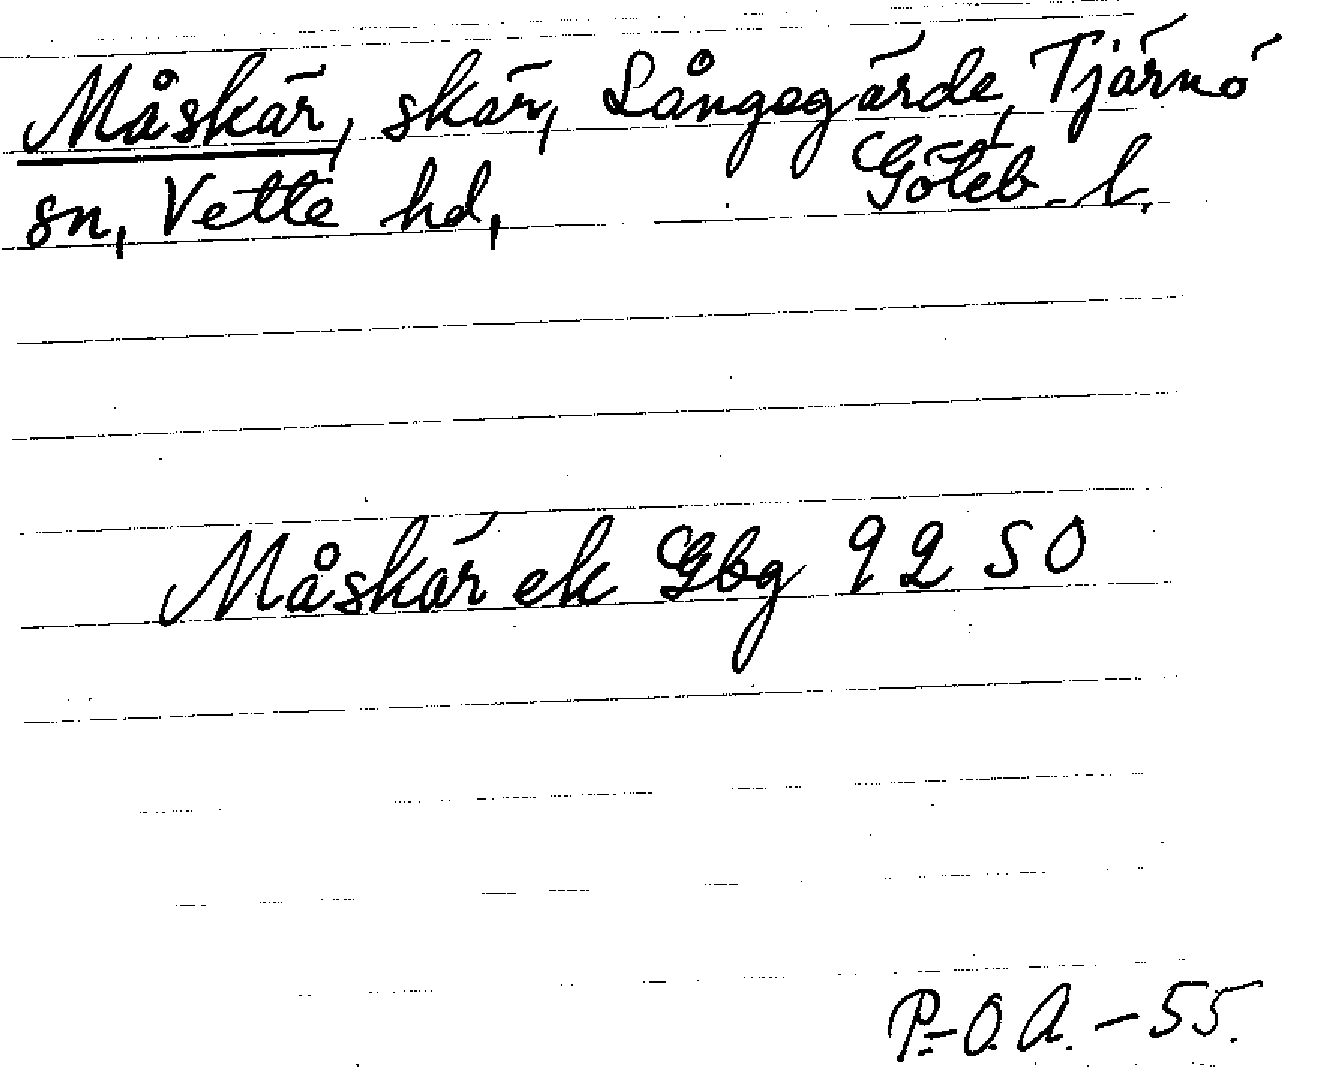 Måskär, skär, Långagärde, Tjärnö
sn, Vette hd, Göteb. l.
Måskär ek Gbg 9250
P.-O.A. - 55.